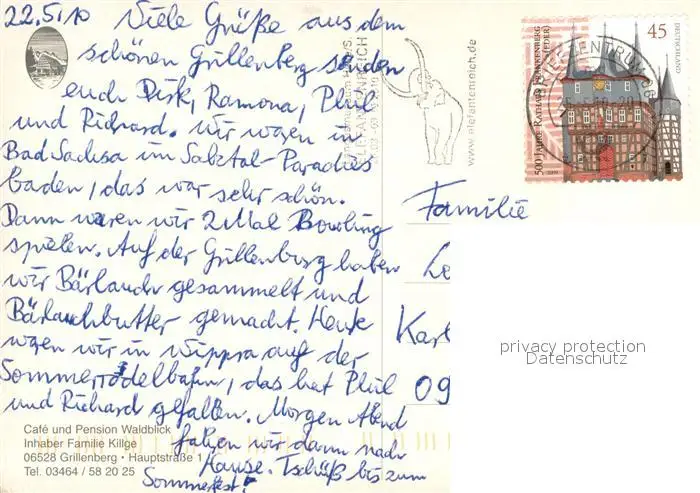 22.5.10 Viele Grüße aus dem
schönen Grillenberg senden
euch Dirk, Ramona, Phil
und Richard. Wir waren in
Bad Sachsa im Salztal-Paradies
baden, das war sehr schön.
Dann waren wir 2 Mal Bowling
spielen. Auf der Grillenburg haben
wir Bärlauch gesammelt und
Bärlauchbutter gemacht. Heute
waren wir in Wippra auf der
Sommerrodelbahn, das hat Phil
und Richard gefallen. Morgen Abend
fahren wir dann nach
Hause. Tschüß bis zum
Sommerfest!
Café und Pension Waldblick
Inhaber Familie Killge
06528 Grillenberg • Hauptstraße 1
Tel. 03464 / 58 20 25
www.elefantenreich.de
500 JAHRE RATHAUS FRANKENBERG
(EDER)
45
DEUTSCHLAND
BRIEFZENTRUM 06
Familie
Le
Karl
09
privacy protection
Datenschutz